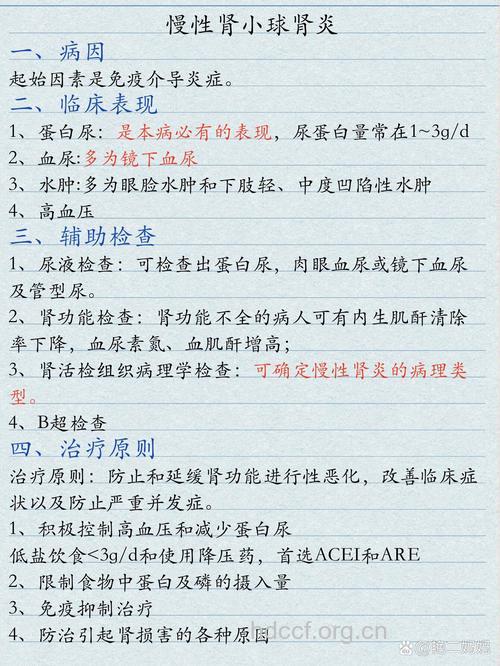 慢性肾小球肾炎
一、病因
起始因素是免疫介导炎症。
二、临床表现
1、蛋白尿：是本病必有的表现，尿蛋白量常在1~3g/d
2、血尿:多为镜下血尿
3、水肿:多为眼睑水肿和下肢轻、中度凹陷性水肿
4、高血压
三、辅助检查
1、尿液检查：可检查出蛋白尿，肉眼血尿或镜下血尿
及管型尿。
2、肾功能检查：肾功能不全的病人可有内生肌酐清除
率下降，血尿素氮、血肌酐增高；
3、肾活检组织病理学检查：可确定慢性肾炎的病理类
型。
4、B超检查
四、治疗原则
治疗原则：防止和延缓肾功能进行性恶化，改善临床症
状以及防止严重并发症。
1、积极控制高血压和减少蛋白尿
低盐饮食<3g/d和使用降压药，首选ACEI和ARE
2、限制食物中蛋白及磷的摄入量
3、免疫抑制治疗
4、防治引起肾损害的各种原因
hdccf.org.cn